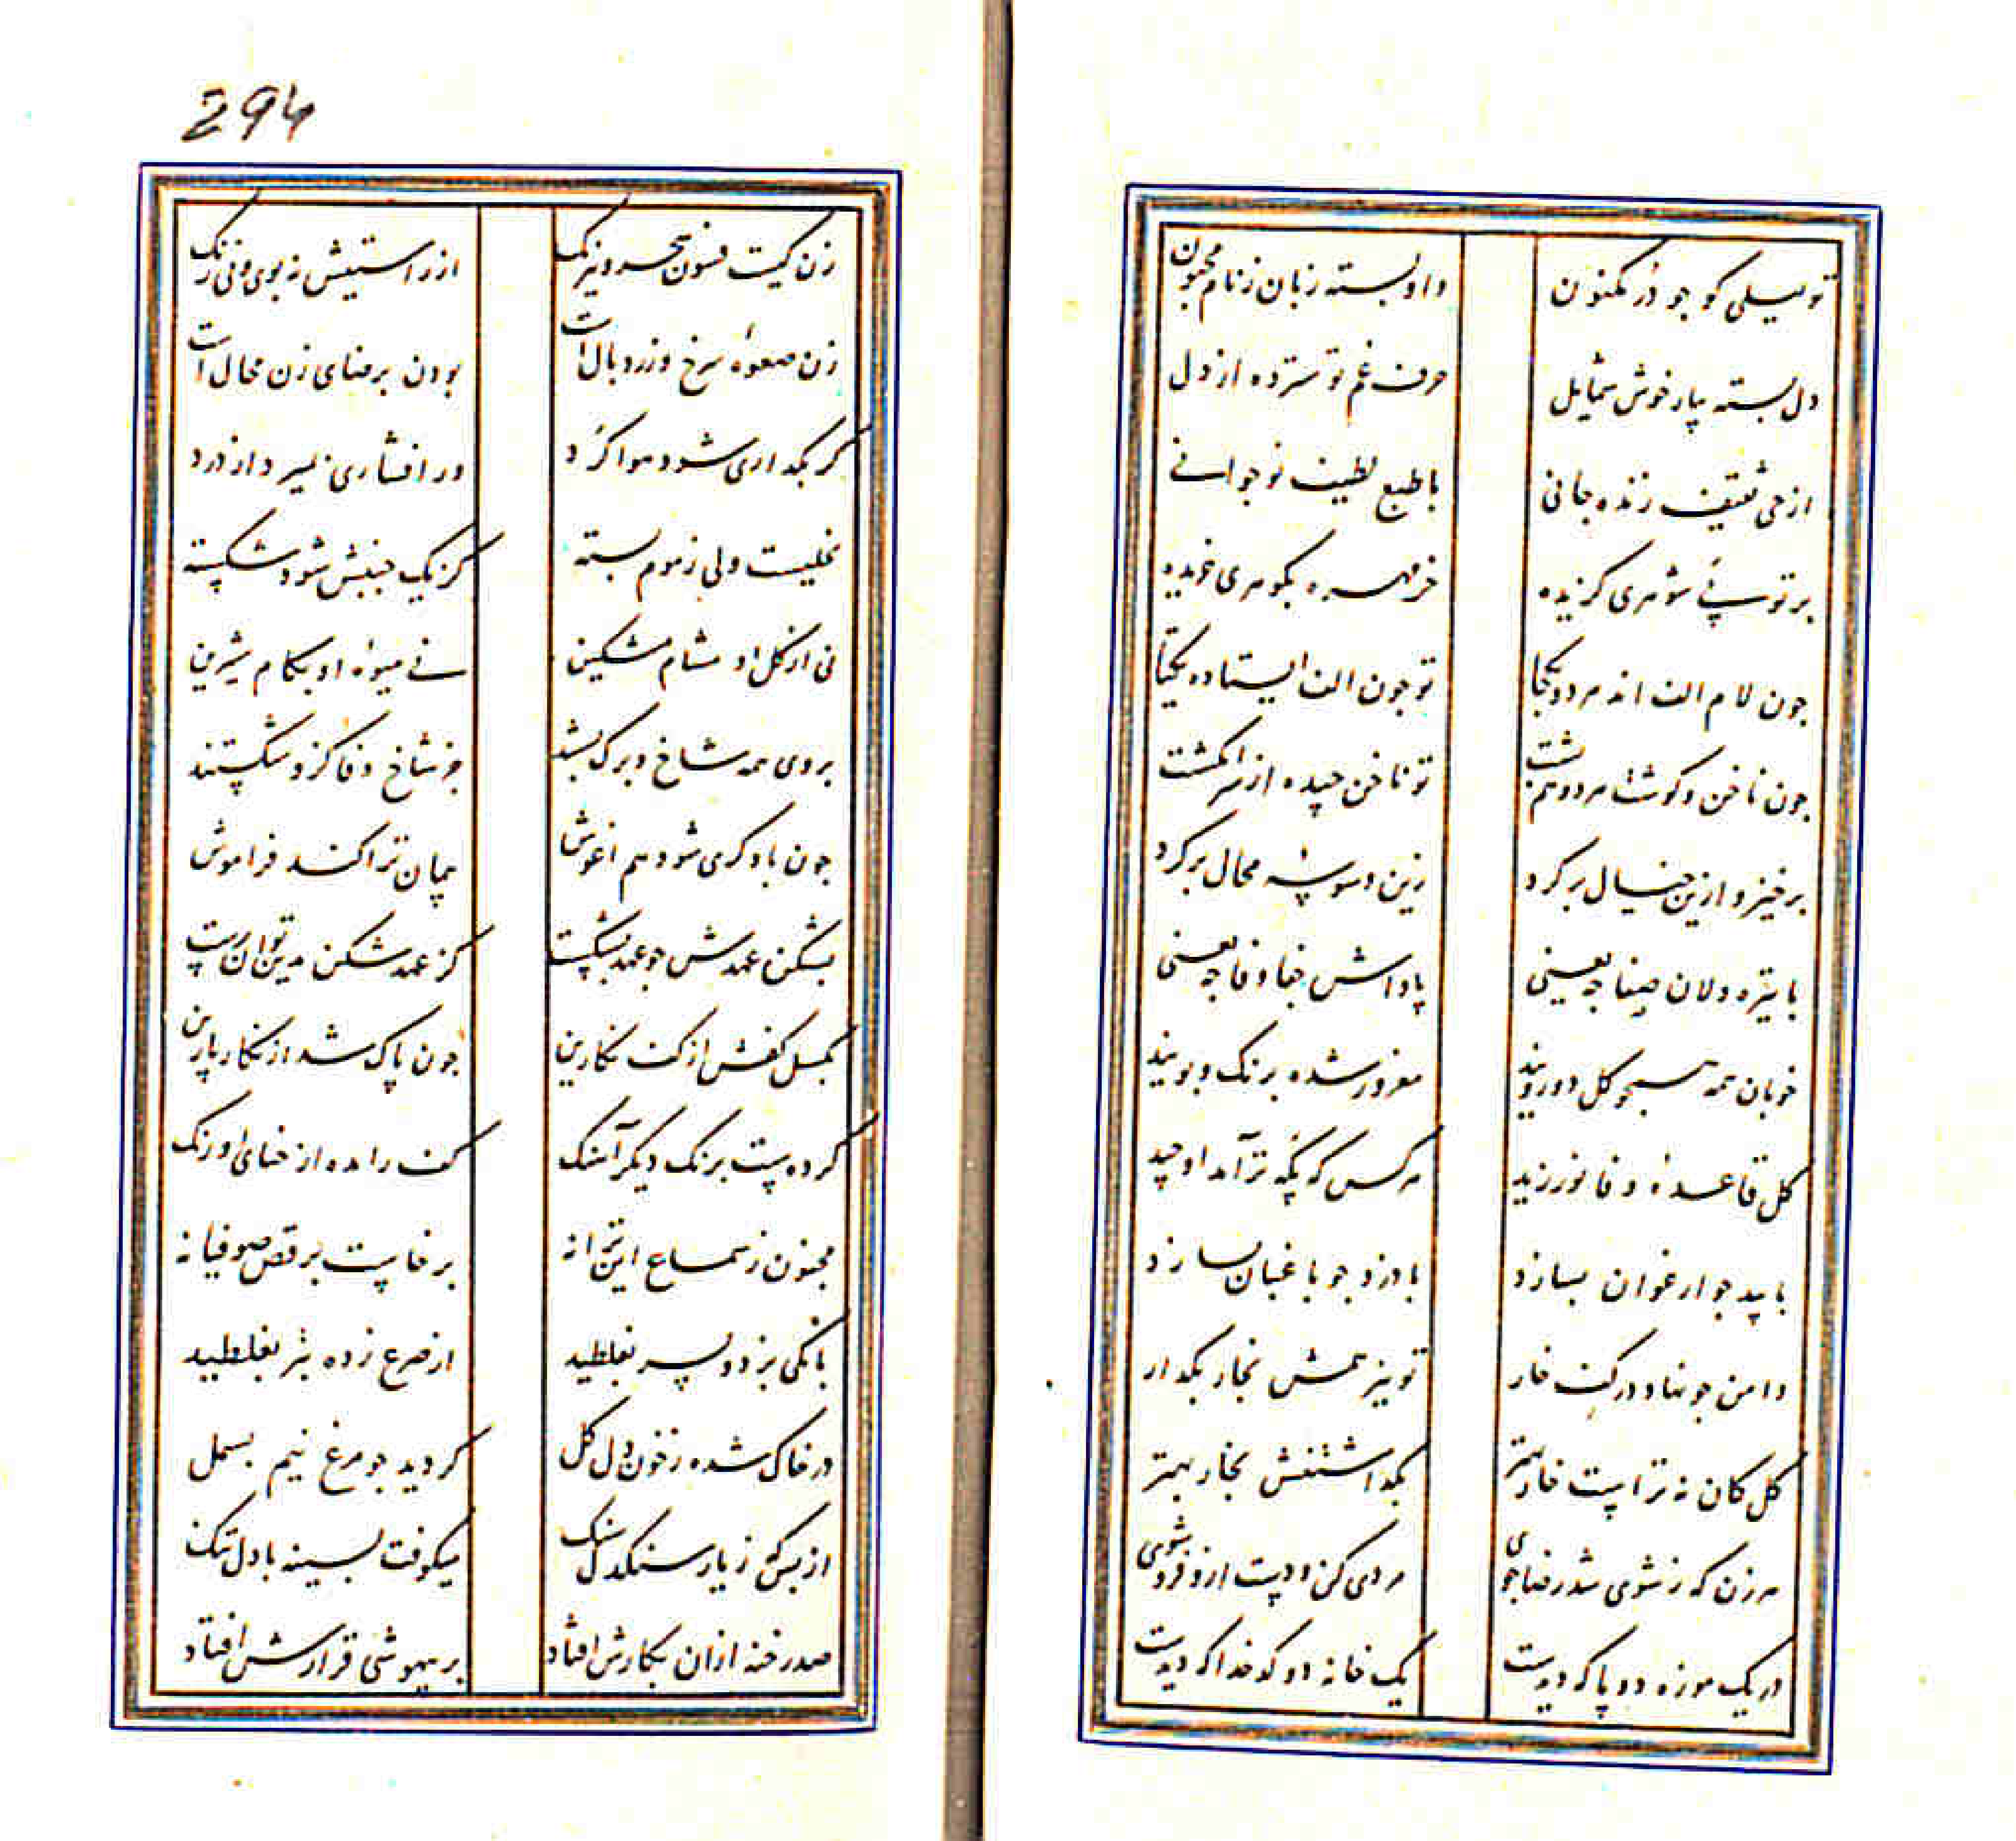 294
تو لیلی کو جو در مکنون
واو بسته زبان ز نام مجنون
دل بسته بیار خوش شمایل
حرف غم تو سترده از دل
از حی ثقیف زنده جانی
با طبع لطیف نوجوانی
بر تو شوهری کزیده
خرمهره بکوهری خریده
جون لام الف اند هر دو یکجا
تو جون الف ایستاده یکتا
جون ناخن و کوشت هر دو هم بشت
تو ناخن جیده از سر انکشت
برخیز و ازین خیال برکرد
زین وسوسه محال برکرد
با تیره دلان صفا جه یعنی
پاداش جفا وفا جه یعنی
خوبان همه همجو کل دورویند
مغرور شده برنک و بویند
کل قاعدهٔ وفا نورزید
هر کس که پکه تر آمد او جید
با بید جو ارغوان بسازد
با دزد جو باغبان بسازد
دامن جو نهاد در کف خار
تو نیز همش بخار بکذار
کل کان نه تراست خار بهتر
بکذاشتنش بخار بهتر
هر زن که ز شوی شد رضاجوی
مردی کن و دست ازو فروشوی
در یک موزه دو پا که دیدست
یک خانه دو کدخدا که دیدست
زن کیست فسون و سحر و نیرنک
از راستیش نه بوی و نی رنک
زن صعوهٔ سرخ و زرد بال است
بودن برضای زن محال است
کر بکذاری شود هوا کرد
ور افشاری بمیرد از درد
نخلیست ولی ز موم بسته
کز یک جنبش شود شکسته
نی از کل او مشام مشکین
نی میوهٔ او بکام شیرین
بر وی همه شاخ و برک بستند
جز شاخ وفا کزو شکستند
جون با دکری شود هم اغوش
پیمان ترا کند فراموش
بشکن عهدش جو عهد بشکست
کز عهد شکن بدین توان رست
بکسل کفش از کف نکارین
جون پاک شد از نکار پارین
کرده است برنک دیکر آهنک
کف راند از حنای او رنک
مجنون ز سماع این ترانه
برخاست برقص صوفیانه
بانکی بزد و بسر بغلطید
از صرع زده بتر بغلطید
در خاک شده ز خون دل کل
کردید جو مرغ نیم بسمل
از بس کز یار سنکدل سنک
میکوفت بسینه با دل تنک
صد رخنه ازان بکارش افتاد
بر بیهوشی قرارش افتاد